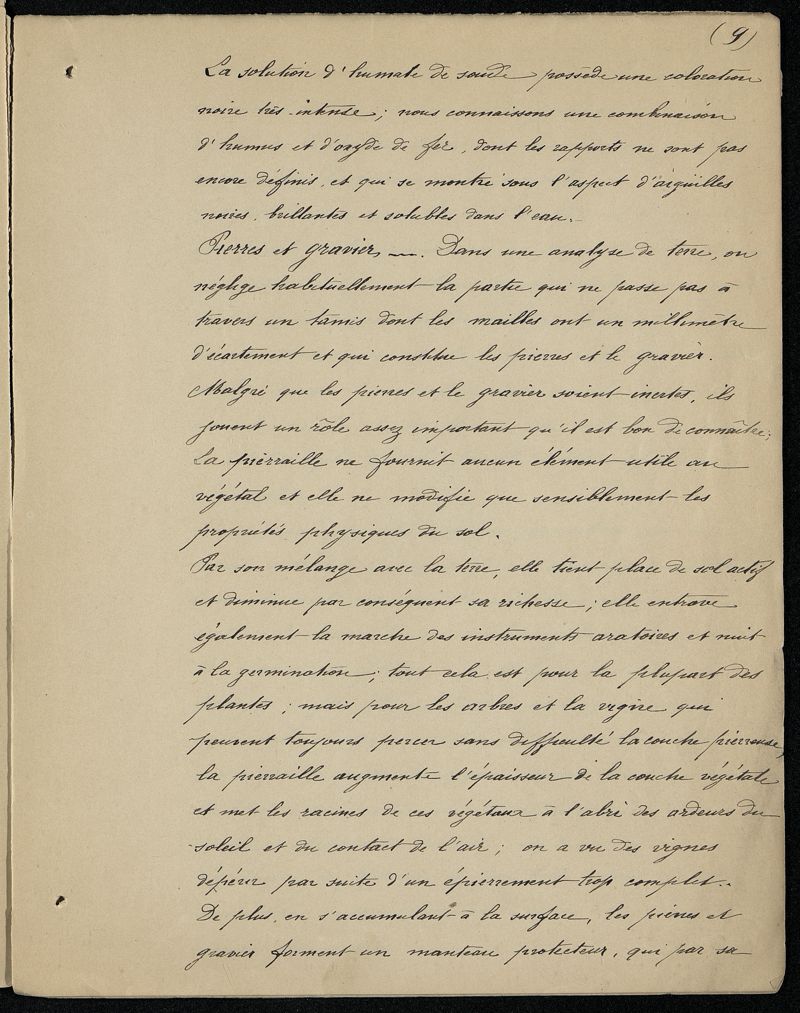 (9)
La solution d'humate de soude possède une coloration
noire très intense ; nous connaissons une combinaison
d'humus et d'oxyde de fer, dont les rapports ne sont pas
encore définis, et qui se montre sous l'aspect d'aiguilles
noires, brillantes et solubles dans l'eau.
Pierres et gravier, —. Dans une analyse de terre, on
néglige habituellement la partie qui ne passe pas à
travers un tamis dont les mailles ont un millimètre
d'écartement et qui constitue les pierres et le gravier.
Malgré que les pierres et le gravier soient inertes, ils
jouent un rôle assez important qu'il est bon de connaître ;
La pierraille ne fournit aucun élément utile au
végétal et elle ne modifie que sensiblement les
propriétés physiques du sol.
Par son mélange avec la terre, elle tient place de sol actif
et diminue par conséquent sa richesse ; elle entrave
également la marche des instruments aratoires et nuit
à la germination ; tout cela est pour la plupart des
plantes ; mais pour les arbres et la vigne qui
peuvent toujours percer sans difficulté la couche pierreuse,
la pierraille augmente l'épaisseur de la couche végétale
et met les racines de ces végétaux à l'abri des ardeurs du
soleil et du contact de l'air ; on a vu des vignes
dépérir par suite d'un épierrement trop complet.
De plus, en s'accumulant à la surface, les pierres et
gravier forment un manteau protecteur, qui par sa